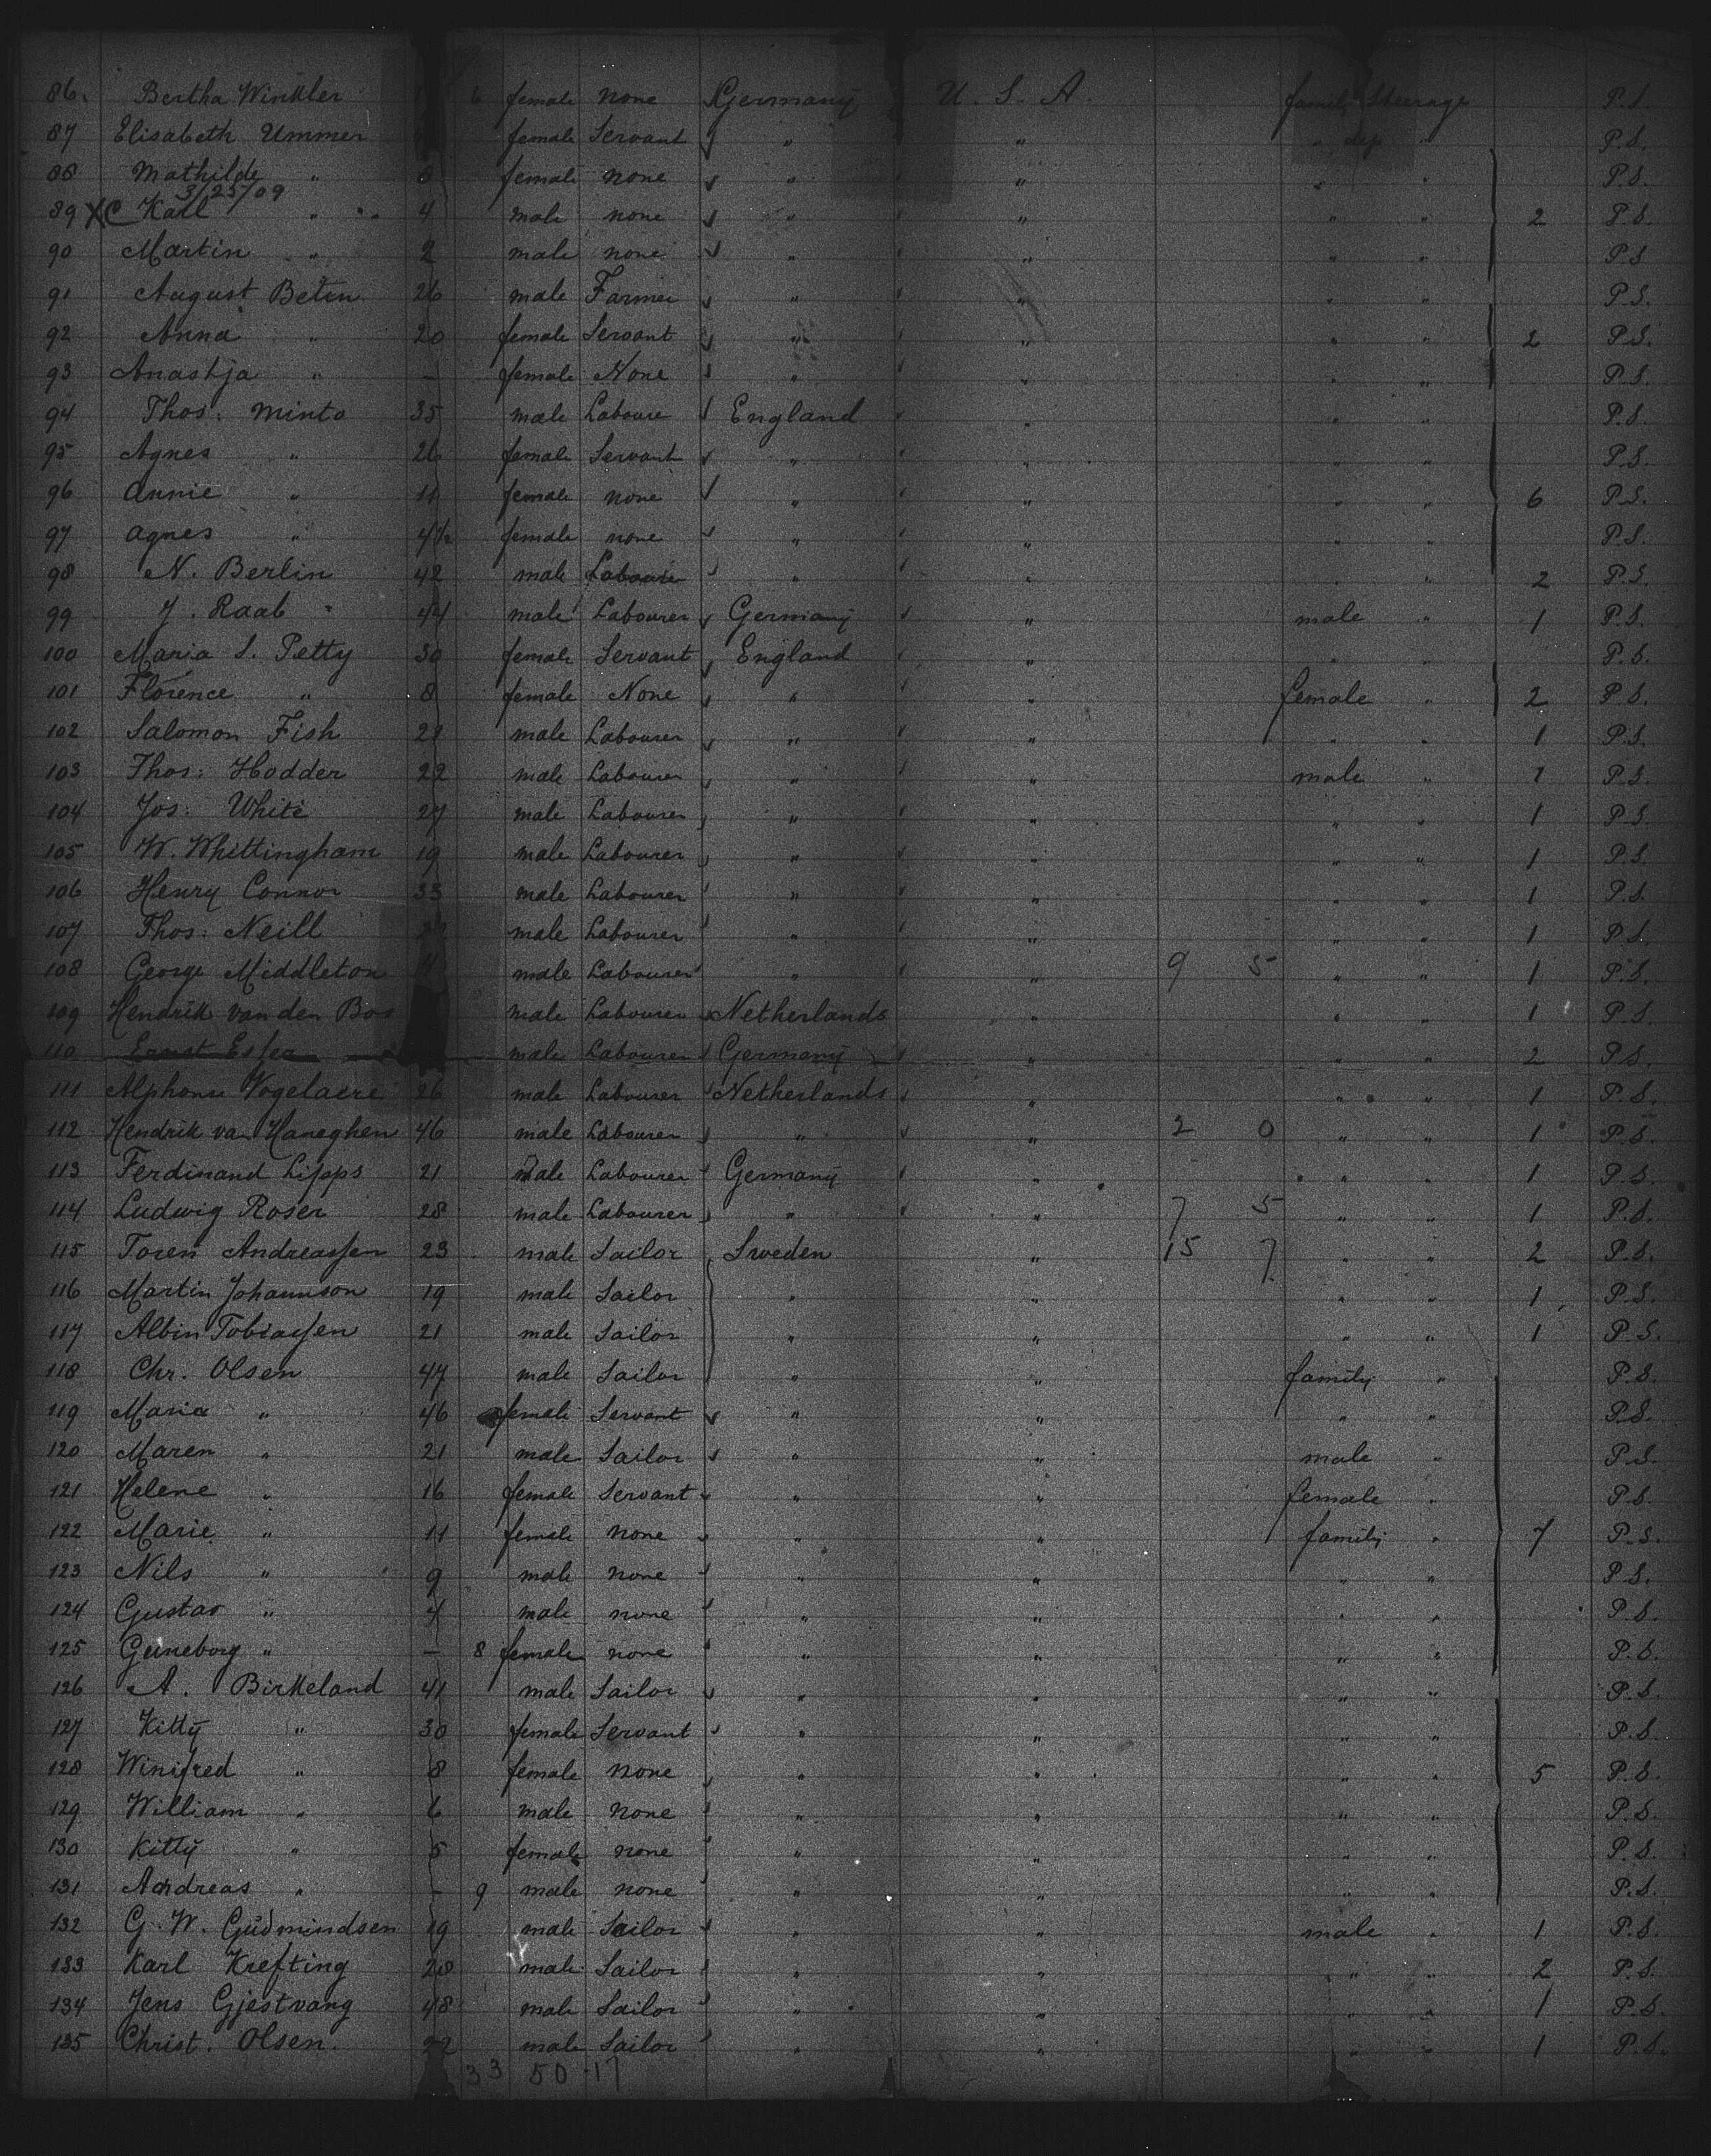 86. Bertha Winkler 6 female none Germany U. S. A. family Steerage P.S.
87 Elisabeth Ummer female Servant " " " " P.S.
88 Mathilde " female none " " " " P.S.
3/25/09
89 XC Karl " 4 male none " " " " 2 P.S.
90 Martin " 2 male none " " " " P.S
91 August Beten 26 male Farmer " " " " P.S.
92 Anna " 20 female Servant " " " " 2 P.S.
93 Anastja " – female None " " " " P.S.
94 Thos: Minto 35 male Laboure England " " " P.S.
95 Agnes " 26 female Servant " " " " P.S.
96 Annie " 11 female none " " " " 6 P.S.
97 Agnes " 4½ female none " " " " P.S.
98 N. Berlin 42 male Laboure " " " " 2 P.S.
99 J. Raab " 44 male Labourer Germany " male " 1 P.S.
100 Maria S. Petty 30 female Servant England " " " P.S.
101 Florence " 8 female None " " female " 2 P.S.
102 Salomon Fish male Labourer " " " " 1 P.S.
103 Thos: Hodder 22 male Labourer " " male " 1 P.S.
104 Jos: White 27 male Labourer " " " " 1 P.S.
105 W. Whittingham 19 male Labourer " " " " 1 P.S.
106 Henry Connor 33 male Labourer " " " " 1 P.S.
107 Thos: Neill male Labourer " " " " 1 P.S.
108 George Middleton male Labourer " " 9 5 " " 1 P.S.
109 Hendrik van den Bos male Labourer Netherlands " " " 1 P.S.
110 Ernst Esser male Labourer Germany " " " 2 P.S.
111 Alphonse Vogelaere 26 male Labourer Netherlands " " " 1 P.S.
112 Hendrik van Haneghen 46 male Labourer " " 2 0 " " 1 P.S.
113 Ferdinand Lipps 21 male Labourer Germany " " " 1 P.S.
114 Ludwig Roser 28 male Labourer " " 7 5 " " 1 P.S.
115 Toren Andreassen 23 male Sailor Sweden " 15 7 " " 2 P.S.
116 Martin Johannson 19 male Sailor " " " " 1 P.S.
117 Albin Tobiassen 21 male Sailor " " " " 1 P.S.
118 Chr. Olsen 47 male Sailor " " family " P.S.
119 Maria " 46 female Servant " " " " P.S.
120 Maren " 21 male Sailor " " male " P.S.
121 Helene " 16 female Servant " " female " P.S.
122 Marie " 11 female none " " family " 7 P.S.
123 Nils " 9 male none " " " " P.S.
124 Gustav " 4 male none " " " " P.S.
125 Guneborg " – 8 female none " " " " P.S.
126 A. Birkeland 41 male Sailor " " " " P.S.
127 Kitty " 30 female Servant " " " " P.S.
128 Winifred " 8 female none " " " " 5 P.S.
129 William " 6 male none " " " " P.S.
130 Kitty " 5 female none " " " " P.S.
131 Andreas " – 9 male none " " " " P.S.
132 G. W. Gudmindsen 19 male Sailor " " male " 1 P.S.
133 Karl Krefting 28 male Sailor " " " " 2 P.S.
134 Jens Gjestvang 48 male Sailor " " " " 1 P.S.
135 Christ. Olsen. 22 male Sailor " " " " 1 P.S.
33 50 17